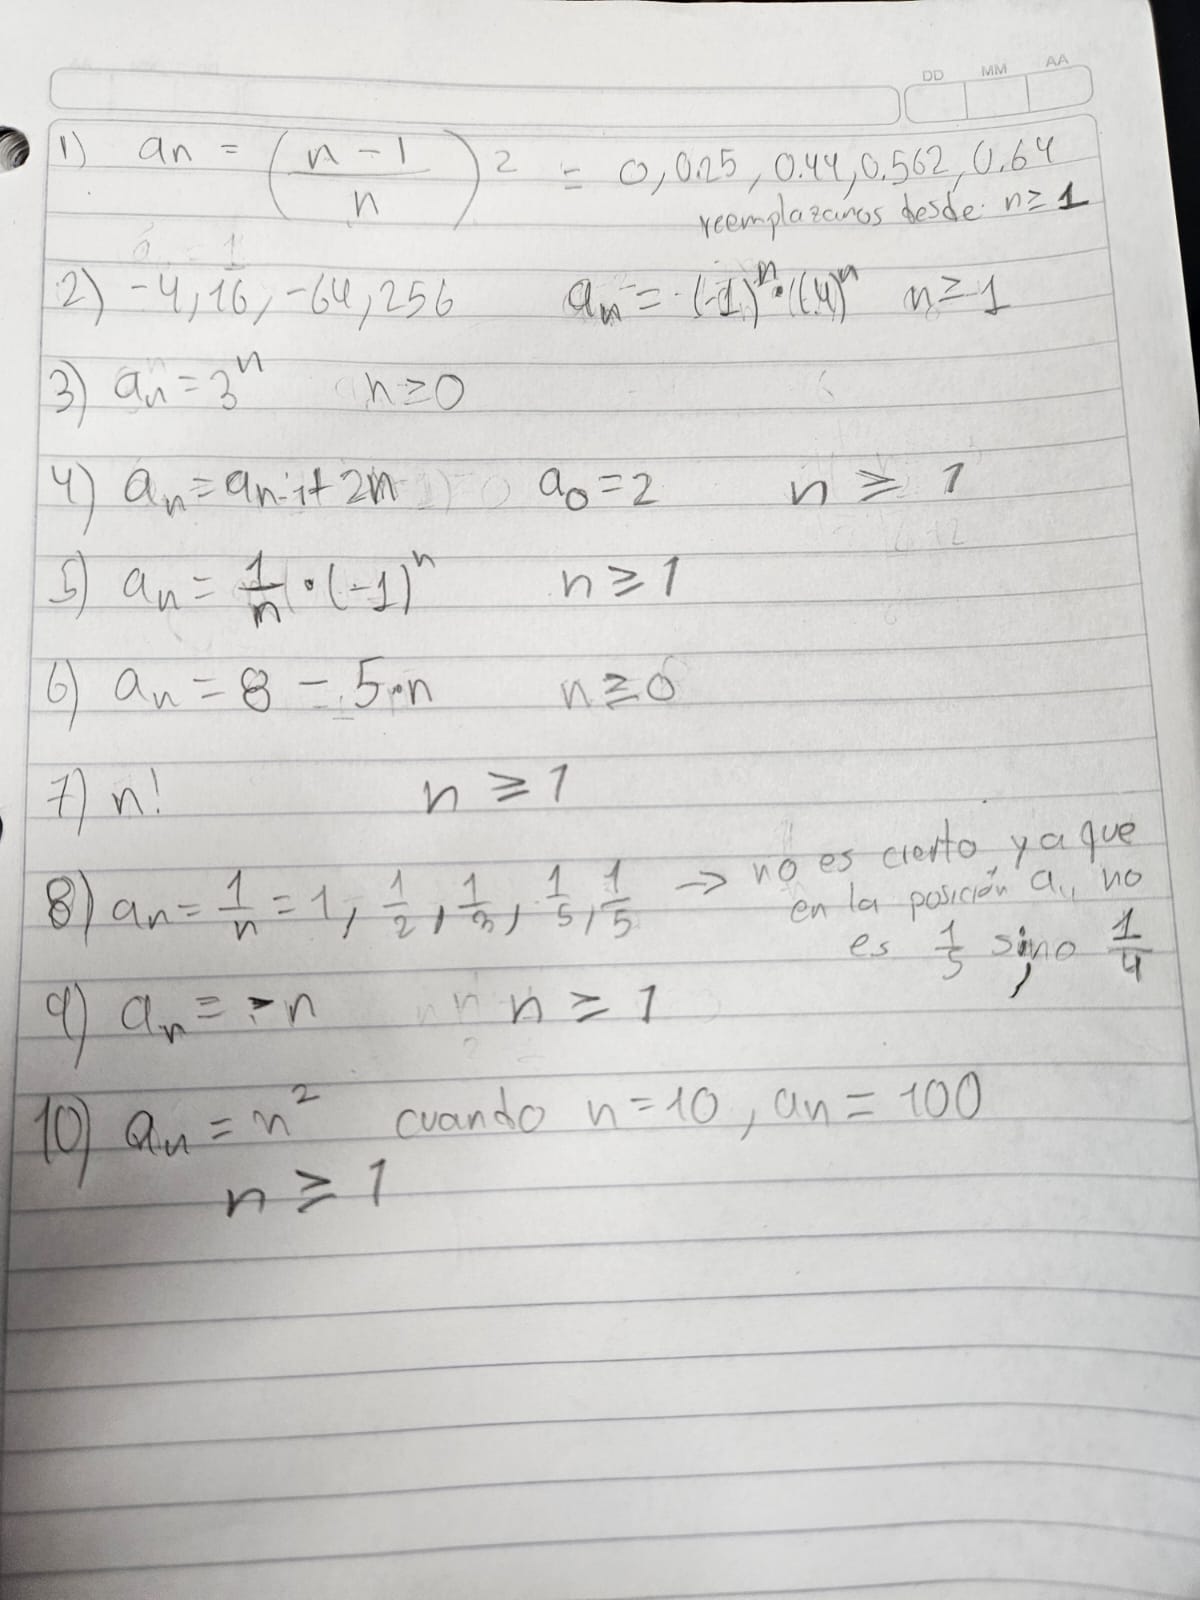 DD MM AA
1) an = (n - 1 / n)^2 = 0, 0.25, 0.44, 0.562, 0.64
reemplazamos desde n ≥ 1
2) -4, 16, -64, 256 an = (-1)^n · (4)^n n ≥ 1
3) an = 3^n n ≥ 0
4) an = an-1 + 2n a0 = 2 n ≥ 1
5) an = 1/n · (-1)^n n ≥ 1
6) an = 8 - 5·n n ≥ 0
7) n! n ≥ 1
8) an = 1/n = 1, 1/2, 1/3, 1/5, 1/5 → no es cierto ya que
en la posición a4 no
es 1/5 sino 1/4
9) an = -n n ≥ 1
10) an = n^2 cuando n = 10, an = 100
n ≥ 1